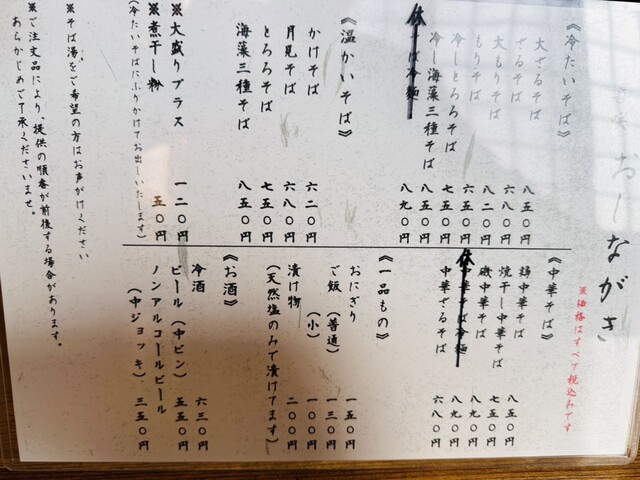 おしながき
※価格はすべて税込みです
《冷たいそば》
大ざるそば 八五〇円
ざるそば 六八〇円
大もりそば 八二〇円
もりそば 六五〇円
冷しとろろそば 七五〇円
冷し海藻三種そば 八五〇円
休 そば冷麺 八九〇円
《温かいそば》
かけそば 六二〇円
月見そば 六八〇円
とろろそば 七五〇円
海藻三種そば 八五〇円
※大盛りプラス 一二〇円
※煮干し粉 五〇円
(冷たいそばにふりかけてお出しいたします)
《中華そば》
鶏中華そば 八五〇円
焼干し中華そば 七五〇円
磯中華そば 八九〇円
休 中華そば冷麺 八九〇円
中華ざるそば 六八〇円
《一品もの》
おにぎり 一五〇円
ご飯(普通) 一三〇円
(小) 一〇〇円
漬け物 二〇〇円
(天然塩のみで漬けてます)
《お酒》
冷酒 六三〇円
ビール(中ビン) 五五〇円
ノンアルコールビール
(中ジョッキ) 三五〇円
※そば湯をご希望の方はお声がけください
※ご注文品により、提供の順番が前後する場合があります。
あらかじめご了承くださいませ。